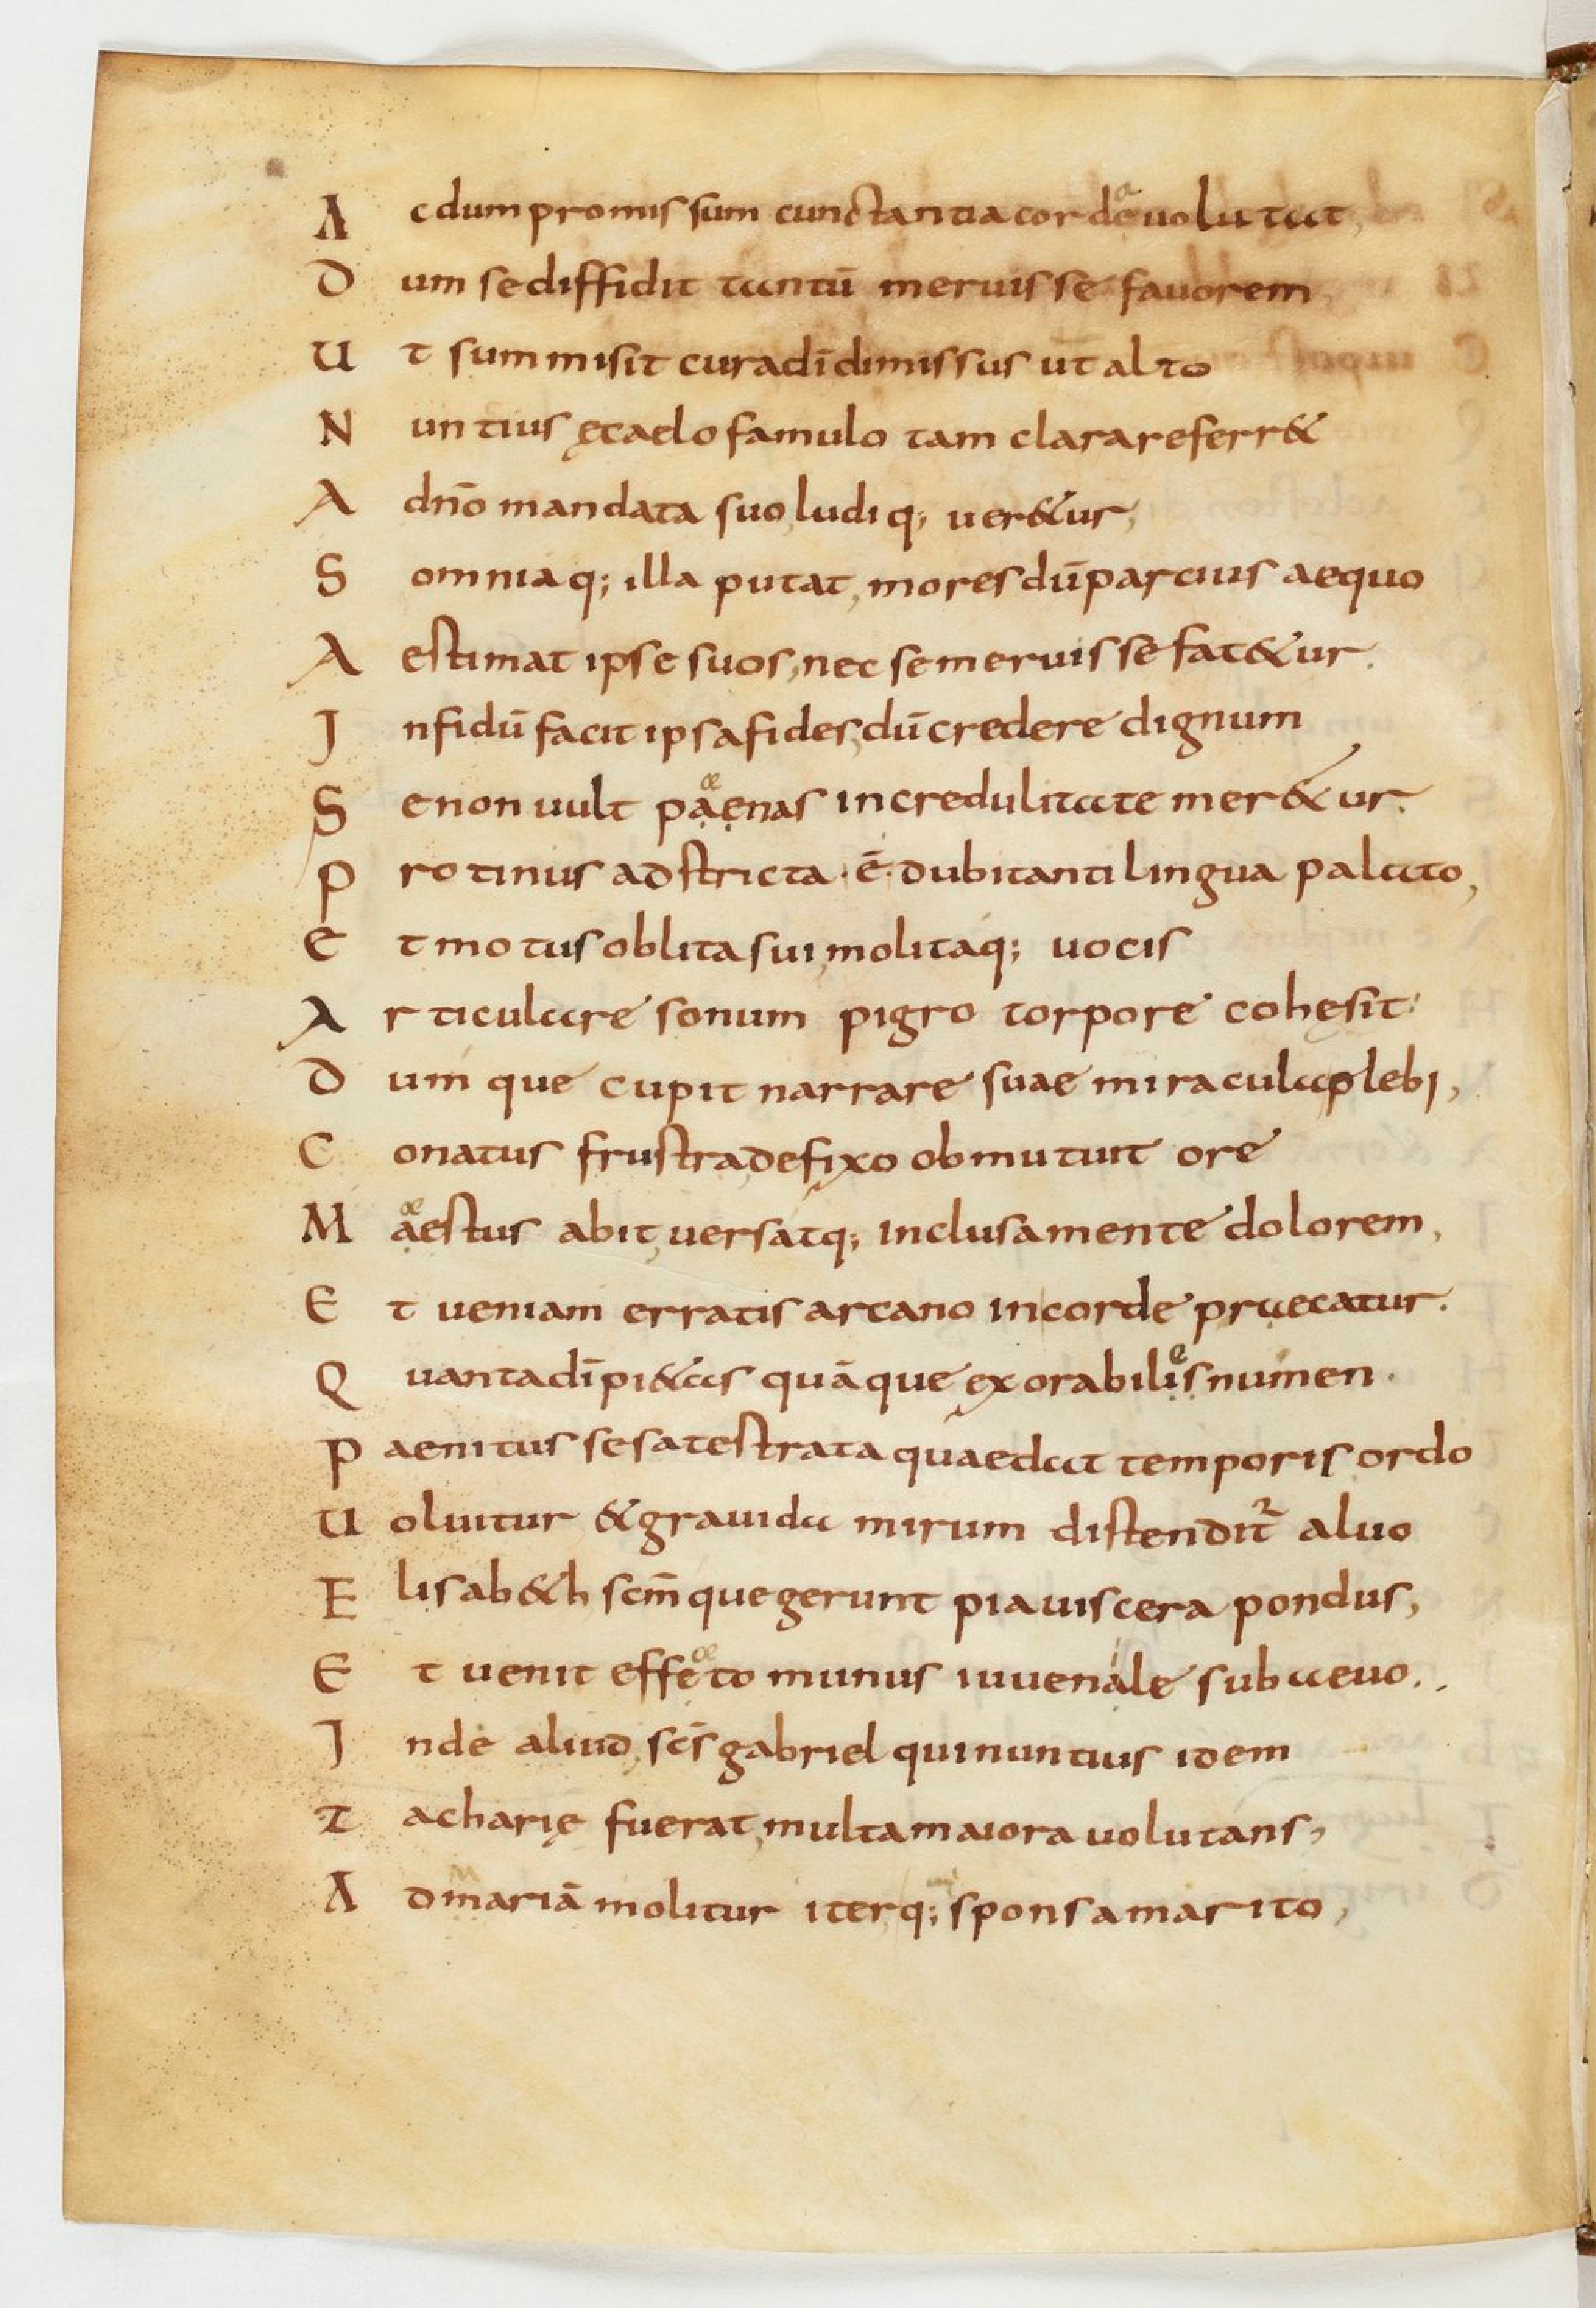 A c dum promissum cunctantia corde uolutat,
D um se diffidit tantū meruisse fauorem
U t summi sit cura dī dimissus ut alto
N untius ęcaelo famulo tam clara referr&
A dnō mandata suo, ludiq; uer&ur,
S omniaq; illa putat, mores dū parcius aequo
A estimat ipse suos, nec se meruisse fat&ur.
I nfidū facit ipsa fides, dū credere dignum
S e non uult paenas incredulitate mer&ur.
P rotinus adstricta ·ē· dubitanti lingua palato,
E t motus oblita sui, molitaq; uocis
A rticulare sonum pigro torpore cohęsit:
D um que cupit narrare suae miracula plebi,
C onatus frustra, defixo obmutuit ore
M aestus abit, uersatq; inclusa mente dolorem,
E t ueniam erratis arcano in corde praecatur.
Q uanta dī pi&as quāque exorabiles numen.
P aenitus sesatestrata quaedat temporis ordo
U oluitur & grauida mirum distendit² aluo
E lisab&h scm̄ que gerunt pia uiscera pondus,
E t uenit effeto munus iuuenale sub aeuo..
I nde aliud, scs̄ gabriel qui nuntius idem
Z acharię fuerat, multa maiora uolutans,
A d mariā molitur iter, q; sponsa marito,